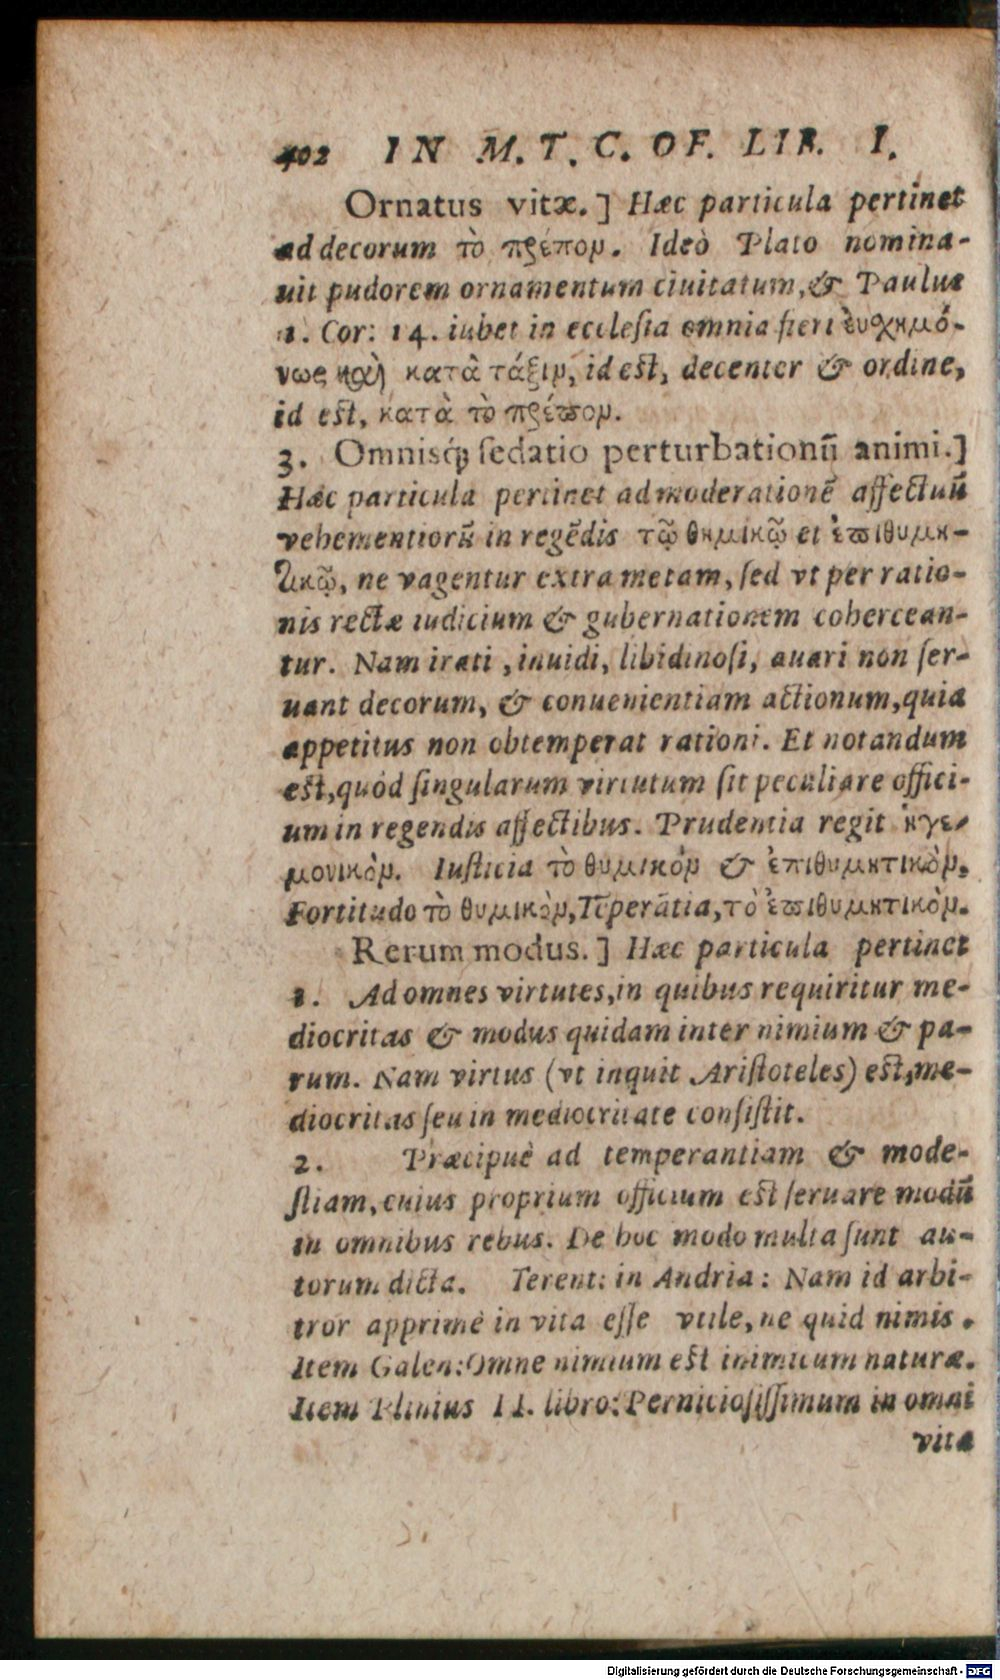 402 IN M. T. C. OF. LIB. I.
Ornatus vitæ. ] Hæc particula pertinet
ad decorum τὸ πρέπον. Ideò Plato nomina-
uit pudorem ornamentum ciuitatum, & Paulus
1. Cor: 14. iubet in ecclesia omnia fieri ἐυσχημό-
νως καὶ κατὰ τάξιν, id est, decenter & ordine,
id est, κατὰ τὸ πρέπον.
3. Omnisq́; sedatio perturbationũ animi. ]
Hæc particula pertinet ad moderationẽ affectuũ
vehementiorũ in regẽdis τῷ θυμικῷ et ἐπιθυμη-
τικῷ, ne vagentur extra metam, sed vt per ratio-
nis rectæ iudicium & gubernationem cohercean-
tur. Nam irati, inuidi, libidinosi, auari non ser-
uant decorum, & conuenientiam actionum, quia
appetitus non obtemperat rationi. Et notandum
est, quòd singularum virtutum sit peculiare offici-
um in regendis affectibus. Prudentia regit ἡγε-
μονικὸν. Iusticia τὸ θυμικὸν & ἐπιθυμητικὸν.
Fortitudo τὸ θυμικὸν, Tẽperãtia, τὸ ἐπιθυμητικὸν.
Rerum modus. ] Hæc particula pertinet
1. Ad omnes virtutes, in quibus requiritur me-
diocritas & modus quidam inter nimium & pa-
rum. Nam virtus (vt inquit Aristoteles) est, me-
diocritas seu in mediocritate consistit.
2. Præcipuè ad temperantiam & mode-
stiam, cuius proprium officium est seruare modũ
in omnibus rebus. De hoc modo multa sunt au-
torum dicta. Terent: in Andria: Nam id arbi-
tror apprimè in vita esse vtile, ne quid nimis.
Item Galen: Omne nimium est inimicum naturæ.
Item Plinius 11. libro: Perniciosissimum in omni
vita
Digitalisierung gefördert durch die Deutsche Forschungsgemeinschaft - DFG